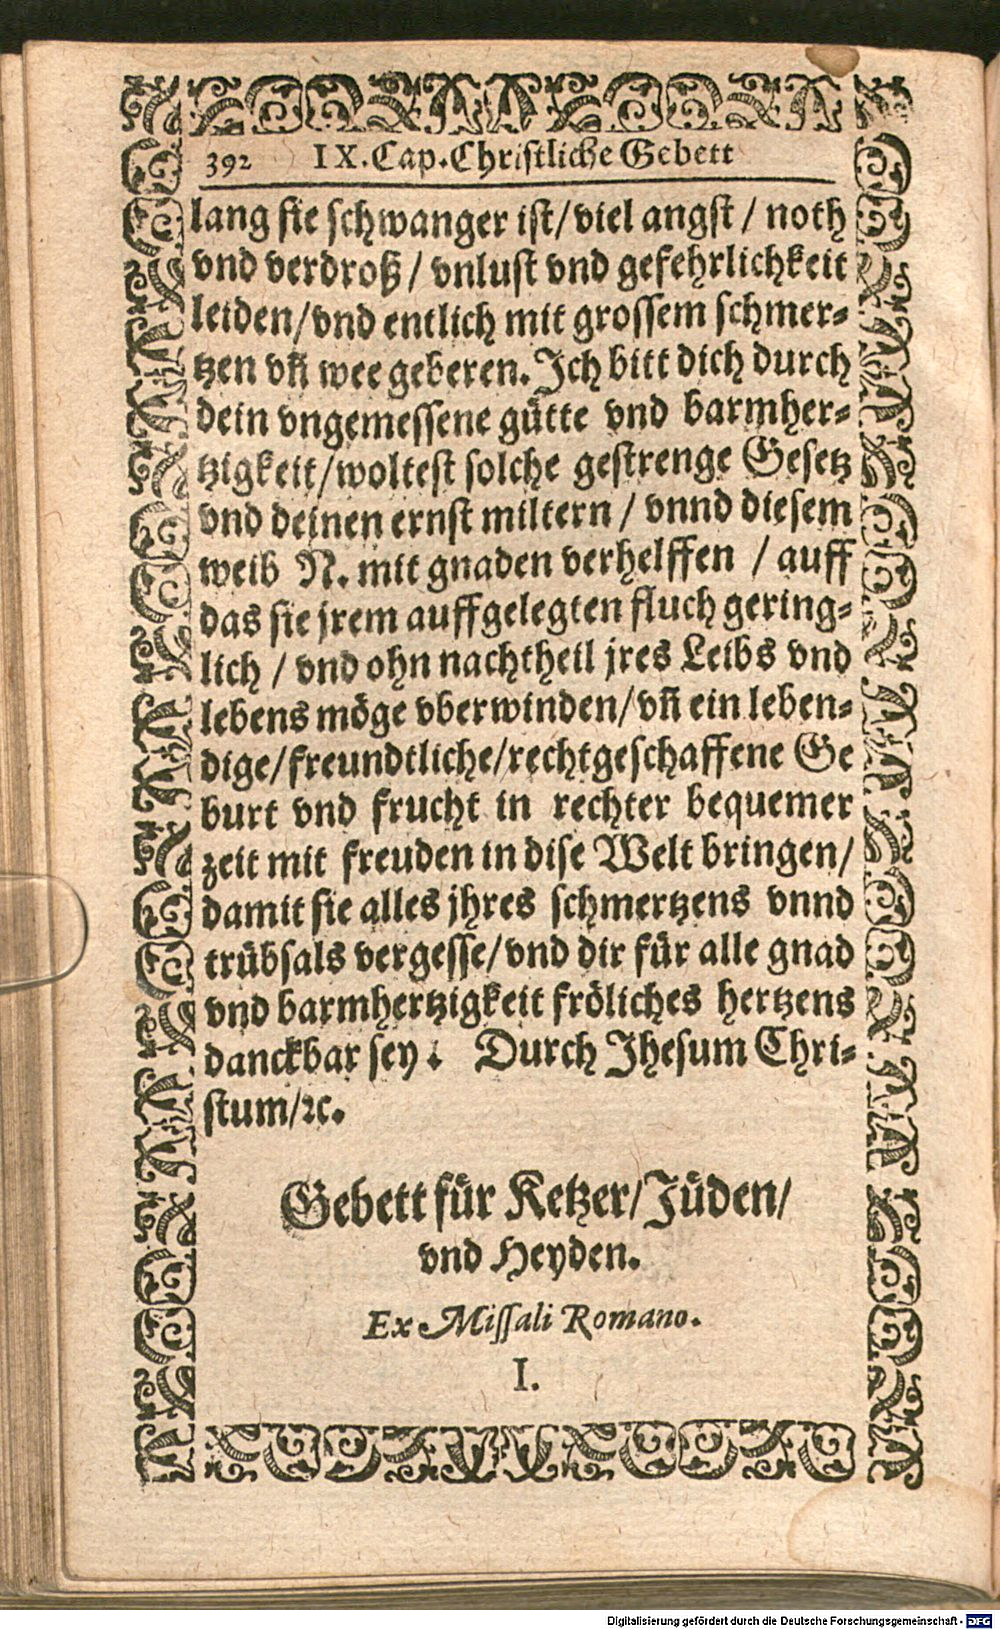 392 IX. Cap. Christliche Gebett
lang sie schwanger ist/ viel angst / noth
vnd verdroß / vnlust vnd gefehrlichkeit
leiden/vnd entlich mit grossem schmer-
tzen vñ wee geberen. Ich bitt dich durch
dein vngemessene gütte vnd barmher-
tzigkeit/woltest solche gestrenge Gesetz
vnd deinen ernst miltern / vnnd diesem
weib N. mit gnaden verhelffen / auff
das sie jrem auffgelegten fluch gering-
lich / vnd ohn nachtheil jres Leibs vnd
lebens möge vberwinden/ vñ ein leben-
dige/freundtliche/rechtgeschaffene Ge
burt vnd frucht in rechter bequemer
zeit mit freuden in dise Welt bringen/
damit sie alles jhres schmertzens vnnd
trübsals vergesse/vnd dir für alle gnad
vnd barmhertzigkeit fröliches hertzens
danckbar sey. Durch Jhesum Chri-
stum/ꝛc.
Gebett für Ketzer/Jüden/
vnd Heyden.
Ex Missali Romano.
I.
Digitalisierung gefördert durch die Deutsche Forschungsgemeinschaft - DFG